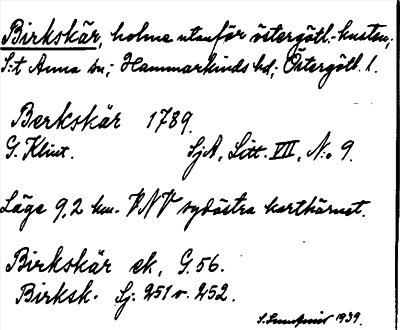 Birkskär, holme utanför östergötl.-kusten;
S:t Anna sn; Hammarkinds hd; Östergötl. l.
Berkskär 1789.
G. Klint. SjA, Litt. VIII, No 9.
Läge 9,2 km. VNV sydöstra karthörnet.
Birkskär ek. G. 56.
Birksk. Sj. 251 o. 252.
1939.